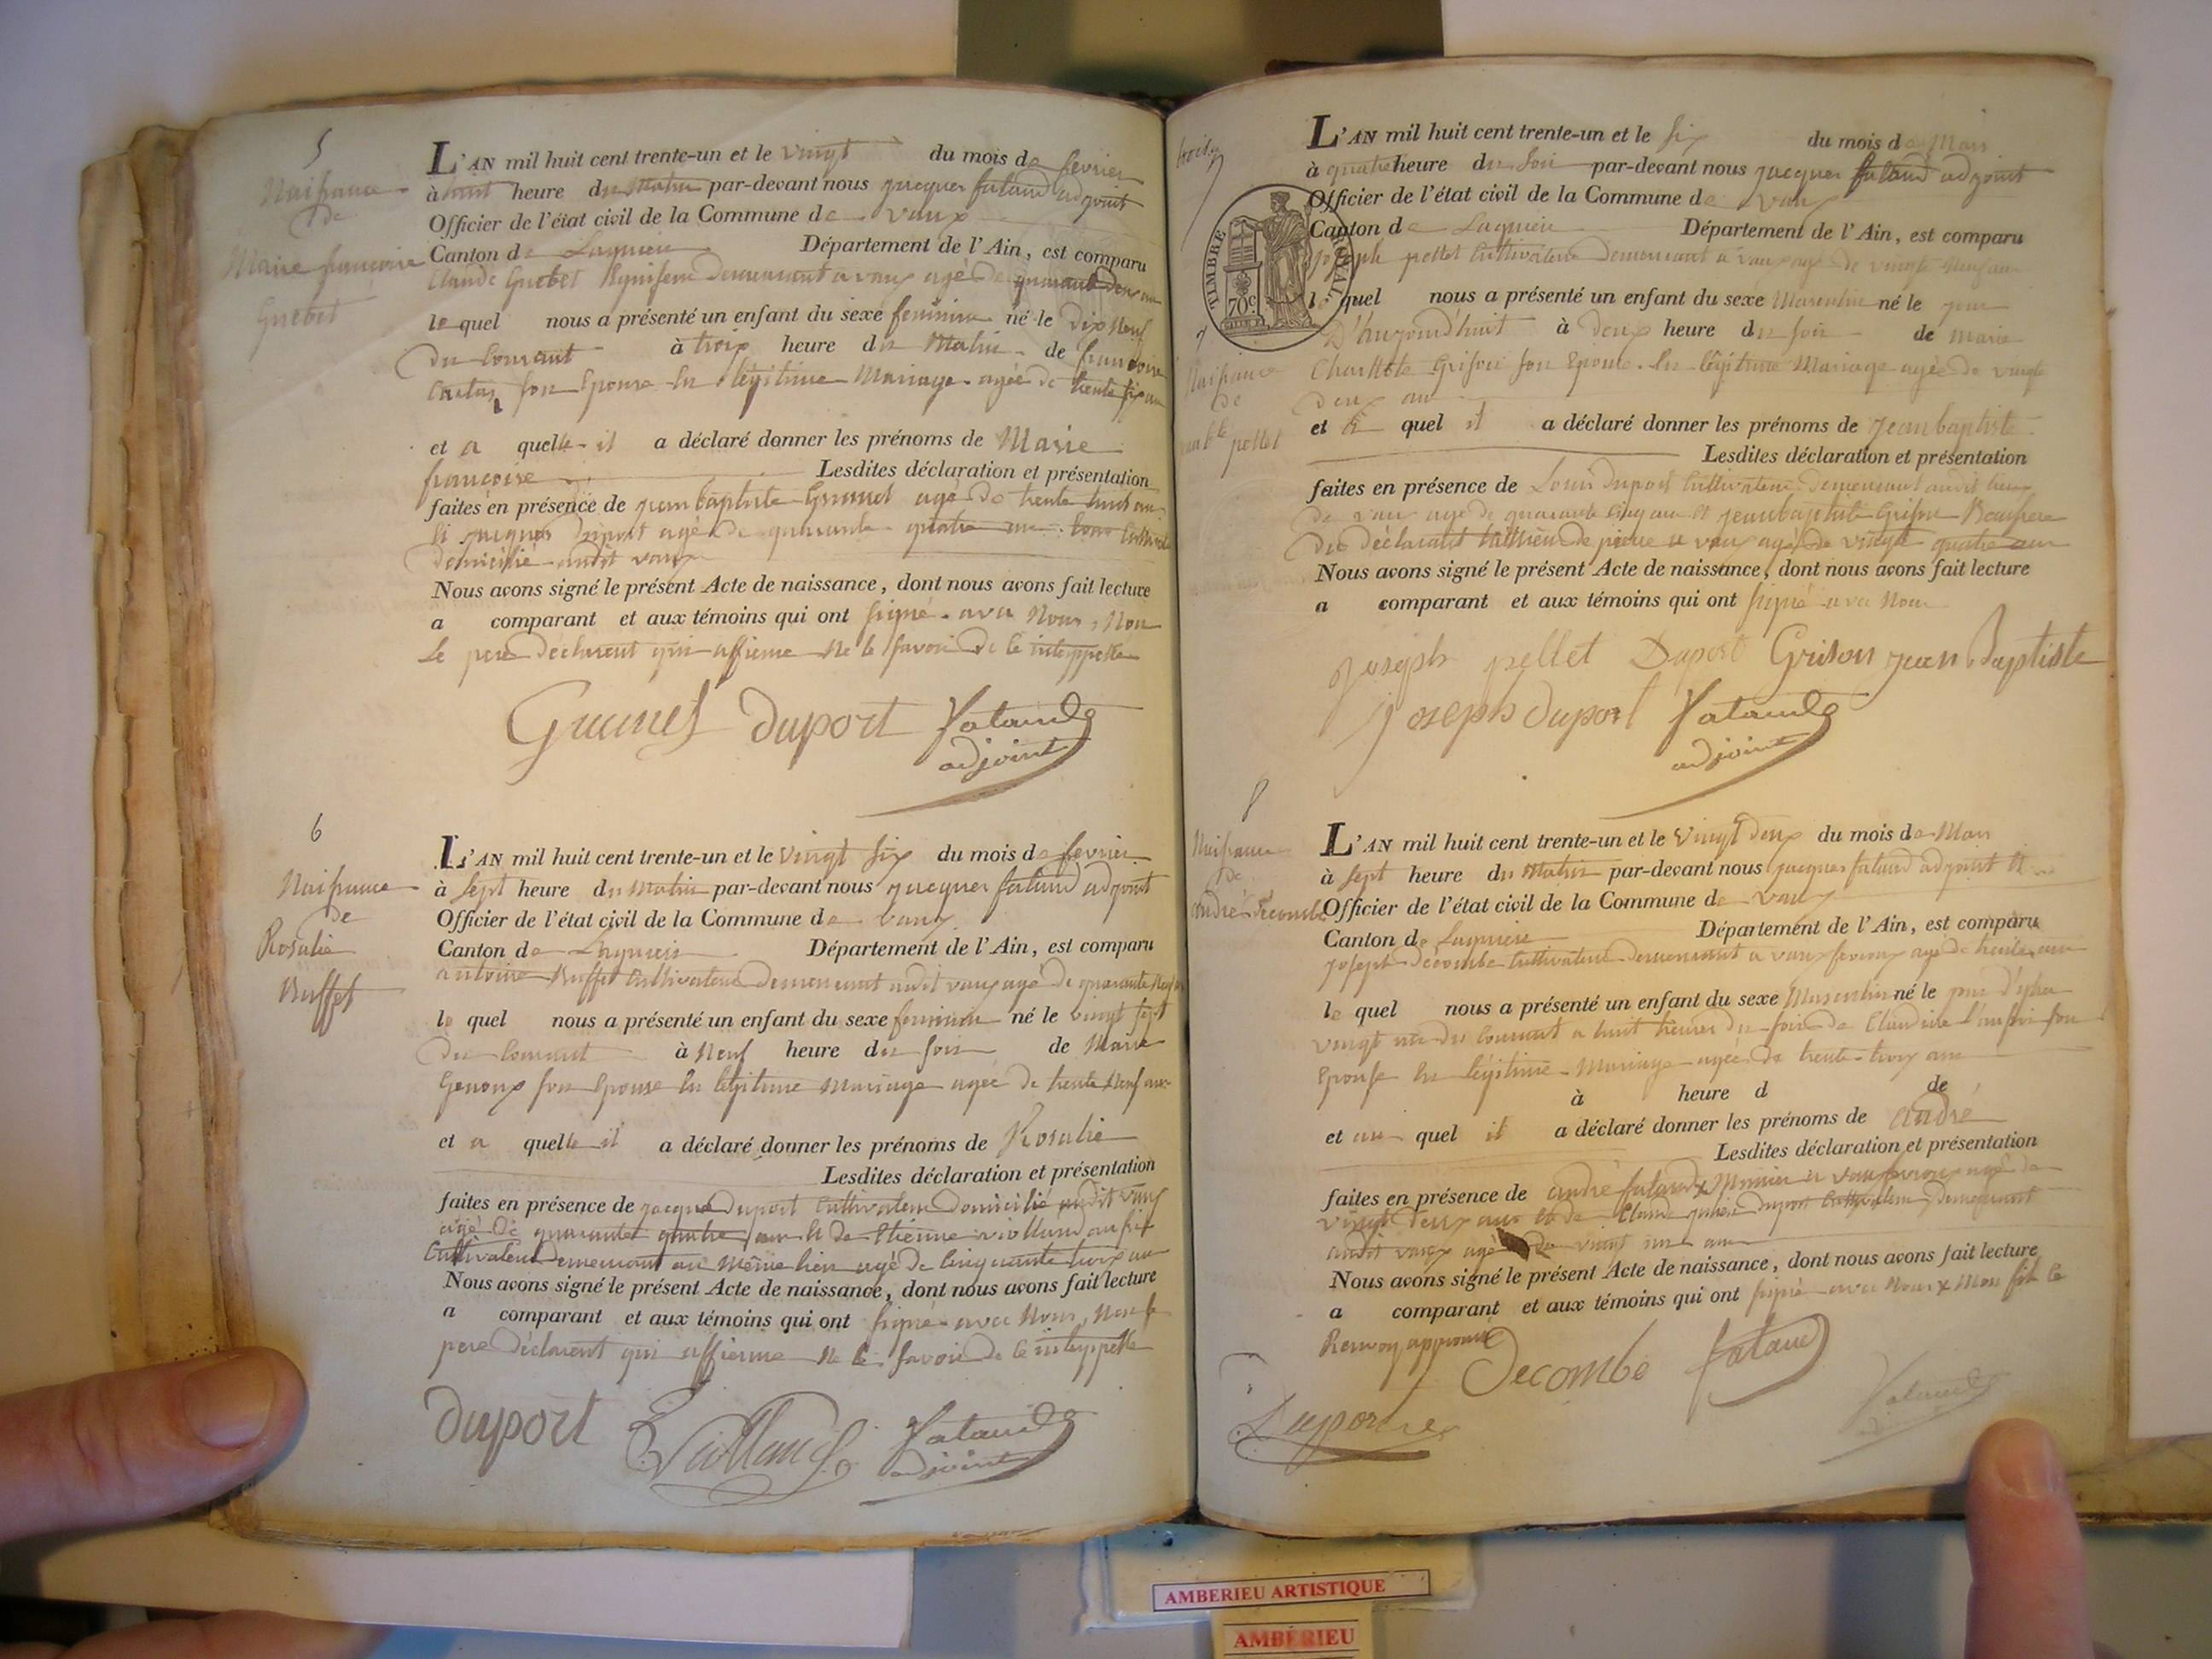 5
Naissance
de
Marie françoise
Guebet
L'AN mil huit cent trente-un et le vingt du mois de fevrier
à huit heure du Matin par-devant nous jacques fataud adjoint
Officier de l'état civil de la Commune de vaux
Canton de Lagnieu Département de l'Ain, est comparu
Claude Guebet demeurant a vaux agé de quarante deux an
lequel nous a présenté un enfant du sexe feminin né le Dix Neuf
du Courant à trois heure du Matin de françoise
son Epouse En légitime Mariage agée de trente six an
et a quelle il a déclaré donner les prénoms de Marie
françoise Lesdites déclaration et présentation
faites en présence de jean baptiste agé de trente huit an
Et jacques Duport agé de quarante quatre an
domicilié audit vaux
Nous avons signé le présent Acte de naissance, dont nous avons fait lecture
a comparant et aux témoins qui ont signé avec Nous, Non
Le pere déclarant qui affierme Ne le savoir de ce inteppelle
duport fataud
adjoint
6
Naissance
de
Rosalie
Buffet
L'AN mil huit cent trente-un et le vingt six du mois de fevrier
à sept heure du Matin par-devant nous jacques fataud adjoint
Officier de l'état civil de la Commune de vaux
Canton de Lagnieu Département de l'Ain, est comparu
antoine Buffet Cultivateur demeurant audit vaux agé de quarante Neuf
le quel nous a présenté un enfant du sexe feminin né le vingt sept
du Courant à Neuf heure du soir de Marie
Genoux son Epouse En legitime Mariage agée de trente Neuf an
et a quelle il a déclaré donner les prénoms de Rosalie
Lesdites déclaration et présentation
faites en présence de jacque Duport Cultivateur Domicilié audit vaux
agé de quarante quatre an et de Etienne viollaud
Cultivateur demeurant au Même lieu agé de Cinquante trois an
Nous avons signé le présent Acte de naissance, dont nous avons fait lecture
a comparant et aux témoins qui ont signé avec Nous, Non le
pere déclarent qui affierme Ne le savoir de ce inteppelle
duport Viollaud fataud
adjoint
7
TIMBRE ROYAL
70c
Naissance
de
pellet
L'AN mil huit cent trente-un et le six du mois de Mars
à quatre heure du soir par-devant nous jacques fataud adjoint
Officier de l'état civil de la Commune de vaux
Canton de Lagnieu Département de l'Ain, est comparu
joseph pellet Cultivateur Demeurant a vaux agé de vingt Neuf an
le quel nous a présenté un enfant du sexe Masculin né le jour
D'aujourd'huit à deux heure du soir de Marie
Charllote Grison son Epouse En légitime Mariage agée de vingt
deux an
et quel il a déclaré donner les prénoms de jean baptiste
Lesdites déclaration et présentation
faites en présence de Louis Duport Cultivateur Demeurant audit lieu
de vaux agé de quarante Cinq an Et jean baptiste Grison Beaufrere
du déclarant de pierre a vaux agé de vingt quatre an
Nous avons signé le présent Acte de naissance, dont nous avons fait lecture
a comparant et aux témoins qui ont signé avec Nous
joseph pellet Duport Grison jean Baptiste
joseph duport fataud
adjoint
8
Naissance
de
andré Decombe
L'AN mil huit cent trente-un et le vingt deux du mois de Mars
à sept heure du Matin par-devant nous jacques fataud adjoint Et
Officier de l'état civil de la Commune de vaux
Canton de Lagnieu Département de l'Ain, est comparu
joseph Decombe Cultivateur demeurant a vaux fevroux agé de trente an
le quel nous a présenté un enfant du sexe Masculin né le jour D'yher
vingt un du Courant a huit heures du soir de Claudine son
Epouse En légitime Mariage agée de trente trois an
à heure d de
et au quel il a déclaré donner les prénoms de André
Lesdites déclaration et présentation
faites en présence de andré fataud x a vaux fevroux agé de
vingt Deux an Et de Claude Duport Cultivateur demeurant
audit vaux agé de vingt an
Nous avons signé le présent Acte de naissance, dont nous avons fait lecture
a comparant et aux témoins qui ont signé avec Nous x
Renvoy approuvé
Decombe fataud
fataud
AMBERIEU ARTISTIQUE
AMBERIEU